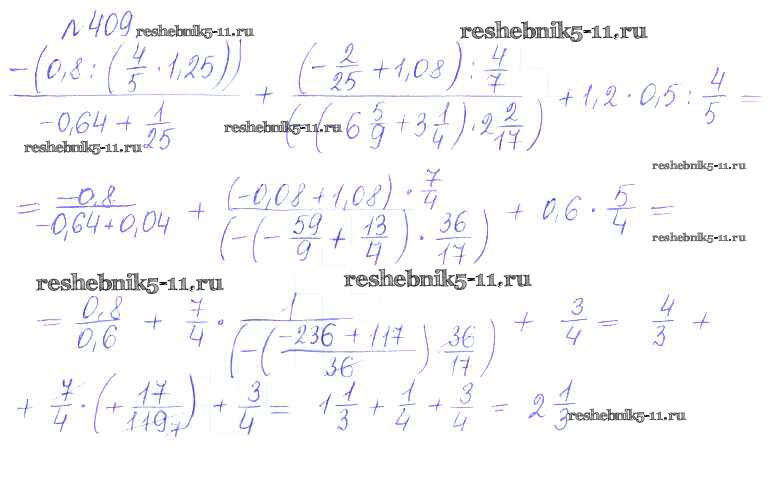 №409 reshebnik5-11.ru reshebnik5-11.ru
-(0,8 : (4/5 · 1,25)) / (-0,64 + 1/25) + (-2/25 + 1,08) : 4/7 / (-(-6 5/9 + 3 1/4) · 2 2/17) + 1,2 · 0,5 : 4/5 =
reshebnik5-11.ru reshebnik5-11.ru reshebnik5-11.ru
= -0,8 / (-0,64 + 0,04) + (-0,08 + 1,08) · 7/4 / (-(-59/9 + 13/4) · 36/17) + 0,6 · 5/4 =
reshebnik5-11.ru
reshebnik5-11.ru reshebnik5-11.ru
= 0,8/0,6 + 7/4 · 1 / (-((-236 + 117)/36) · 36/17) + 3/4 = 4/3 +
+ 7/4 · (+17/119₇) + 3/4 = 1 1/3 + 1/4 + 3/4 = 2 1/3
reshebnik5-11.ru